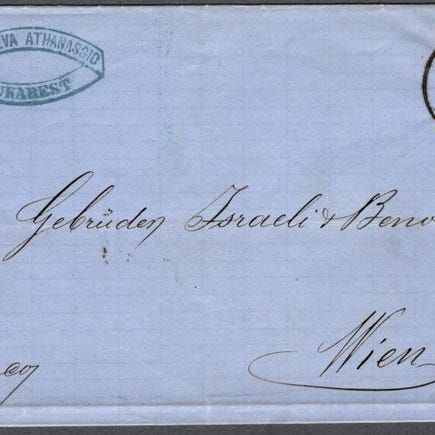 VA ATHANASSIO
BUKAREST
Gebrüder Israeli & Benv
Wien